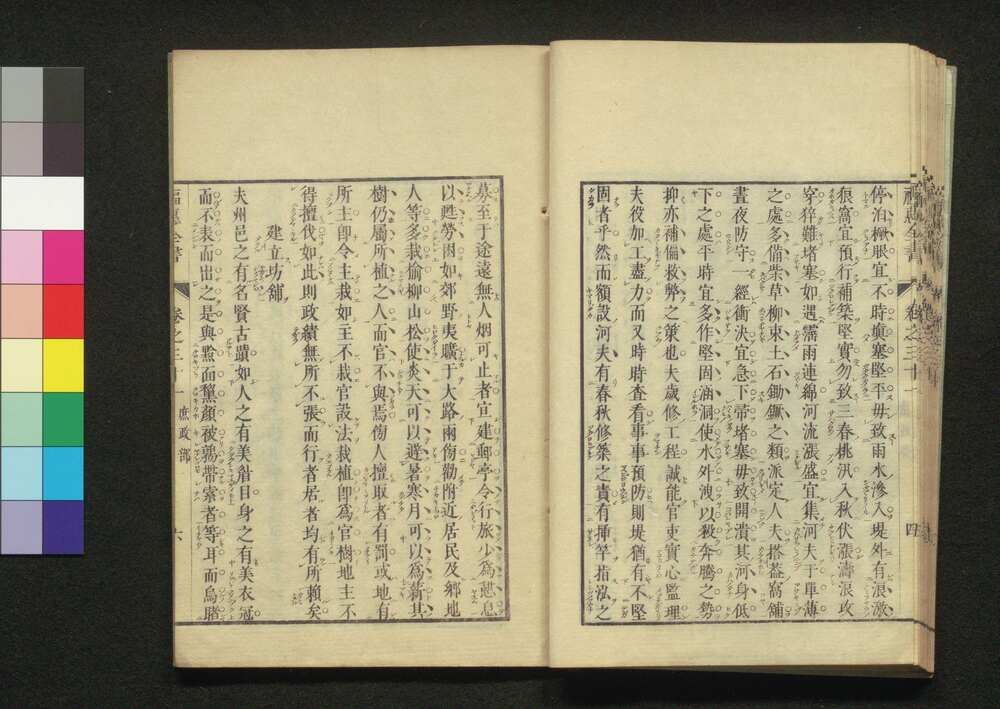 停泊楸脹宜不時填塞堅平毋致雨水滲入堤外有浪激
狠窩宜預行補築堅實勿致三春桃汛入秋伏漲濤浪攻
穿猝難堵塞如遇霪雨連綿河流漲盛宜集河夫于單薄
之處多備柴草柳束土石鋤鐝之類派定人夫搭蓋窩舖
晝夜防守一經衝決宜急下帚堵塞毋致開潰其河身低
下之處平時宜多作堅固涵洞使水外洩以殺奔騰之勢
抑亦補偏救弊之策也夫歲修工程誠能官吏實心監理
夫役加工盡力而又時時査看事事預防則堤猶有不堅
固者乎然而額設河夫有春秋修築之責有揮竿指泓之
福惠全書
卷之三十一
四
募至于途遠無人烟可止者宜建郵亭令行旅少爲憇息
以甦勞困如郊野夷曠于大路兩傍勸附近居民及鄉地
人等多栽榆柳山松使炎天可以避暑寒月可以爲薪其
樹仍屬所植之人而官不與焉傍人擅取者有罰或地有
所主即令主栽如主不栽官設法栽植即爲官樹地主不
得擅伐如此則政績無所不張而行者居者均有所賴矣
建立坊舖
夫州邑之有名賢古蹟如人之有美眉目身之有美衣冠
而不表而出之是與黥面黧顔被鶉帶索者等耳而烏睹
福惠全書
卷之三十一
庶政部
六